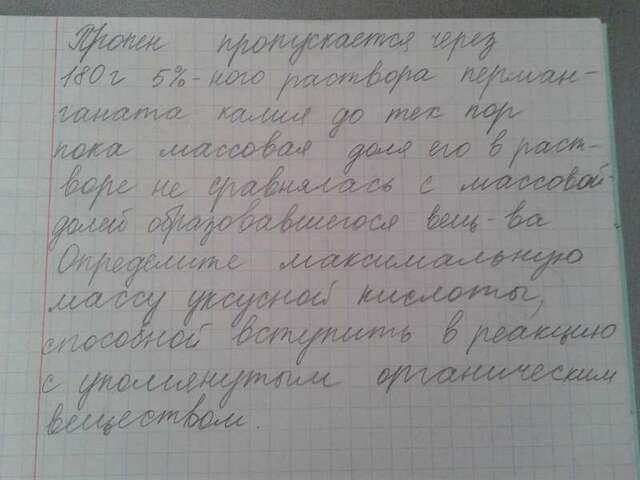 Пропен пропускается через
180г 5%-ного раствора перман-
ганата калия до тех пор
пока массовая доля его в раст-
воре не сравнялась с массовой
долей образовавшегося вещ-ва
Определите максимальную
массу уксусной кислоты,
способной вступить в реакцию
с упомянутым органическим
веществом.